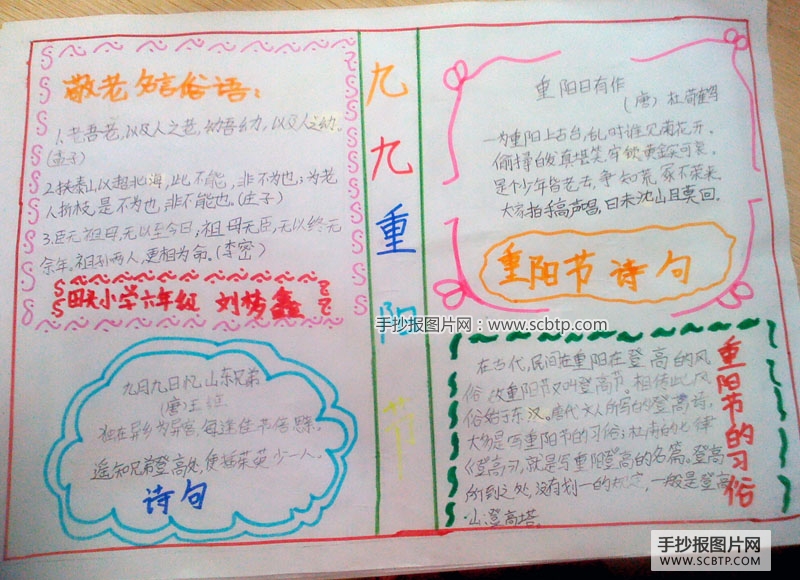 敬老名言俗语：
1.老吾老，以及人之老，幼吾幼，以及人之幼。
(孟子)
2.挟泰山，以超北海，此不能，非不为也；为老
人折枝，是不为也，非不能也。(孟子)
3.臣无祖母，无以至今日；祖母无臣，无以终
余年。祖孙两人，更相为命。(李密)
小学六年级 刘梦鑫
九月九日忆山东兄弟
(唐)王维
独在异乡为异客，每逢佳节倍思亲。
遥知兄弟登高处，便插茱萸少一人。
诗句
九
九
重
阳
节
重阳日有作
(唐) 杜荀鹤
一为重阳上古台，乱时谁见菊花开。
偷挦白发真堪笑，牢锁黄金实可哀。
是个少年皆老去，争知荒冢不荣来。
大家拍手高声唱，日未沈山且莫回。
重阳节诗句
重阳节的习俗
在古代，民间在重阳在登高的风
俗，故重阳节又叫登高节。相传此风
俗始于东汉。唐代文人所写的登高诗，
大多是写重阳节的习俗；杜甫的七律
《登高》，就是写重阳登高的名篇。登高
所到之处，没有划一的规定，一般是登高
山登高塔。
手抄报图片网：www.scbtp.com
手抄报图片网
WWW.SCBTP.COM